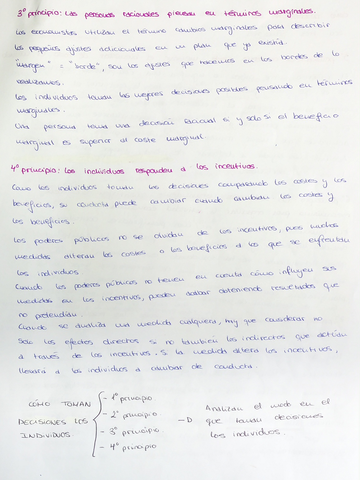 3º principio: Las personas racionales piensan en términos marginales.
Los economistas utilizan el término cambios marginales para describir
los pequeños ajustes adicionales en un plan que ya existía.
"Margen" = "borde", son los ajustes que hacemos en los bordes de lo
realizamos.
Los individuos toman las mejores decisiones posibles pensando en términos
marginales.
Una persona toma una decisión racional si y solo si el beneficio
marginal es superior al coste marginal.
4º principio: Los individuos responden a los incentivos.
Como los individuos toman las decisiones comparando los costes y los
beneficios, su conducta puede cambiar cuando cambian los costes y
los beneficios.
Los poderes públicos no se olvidan de los incentivos, pues muchas
medidas alteran los costes o los beneficios a los que se enfrentan
los individuos.
Cuando los poderes públicos no tienen en cuenta cómo influyen sus
medidas en los incentivos, pueden acabar obteniendo resultados que
no pretendían.
Cuando se analiza una medida cualquiera, hay que considerar no
solo los efectos directos si no también los indirectos que actúan
a través de los incentivos. Si la medida altera los incentivos,
llevará a los individuos a cambiar de conducta.
CÓMO TOMAN
DECISIONES LOS
INDIVIDUOS
- 1º principio
- 2º principio
- 3º principio
- 4º principio
Analizan el modo en el
que toman decisiones
los individuos.